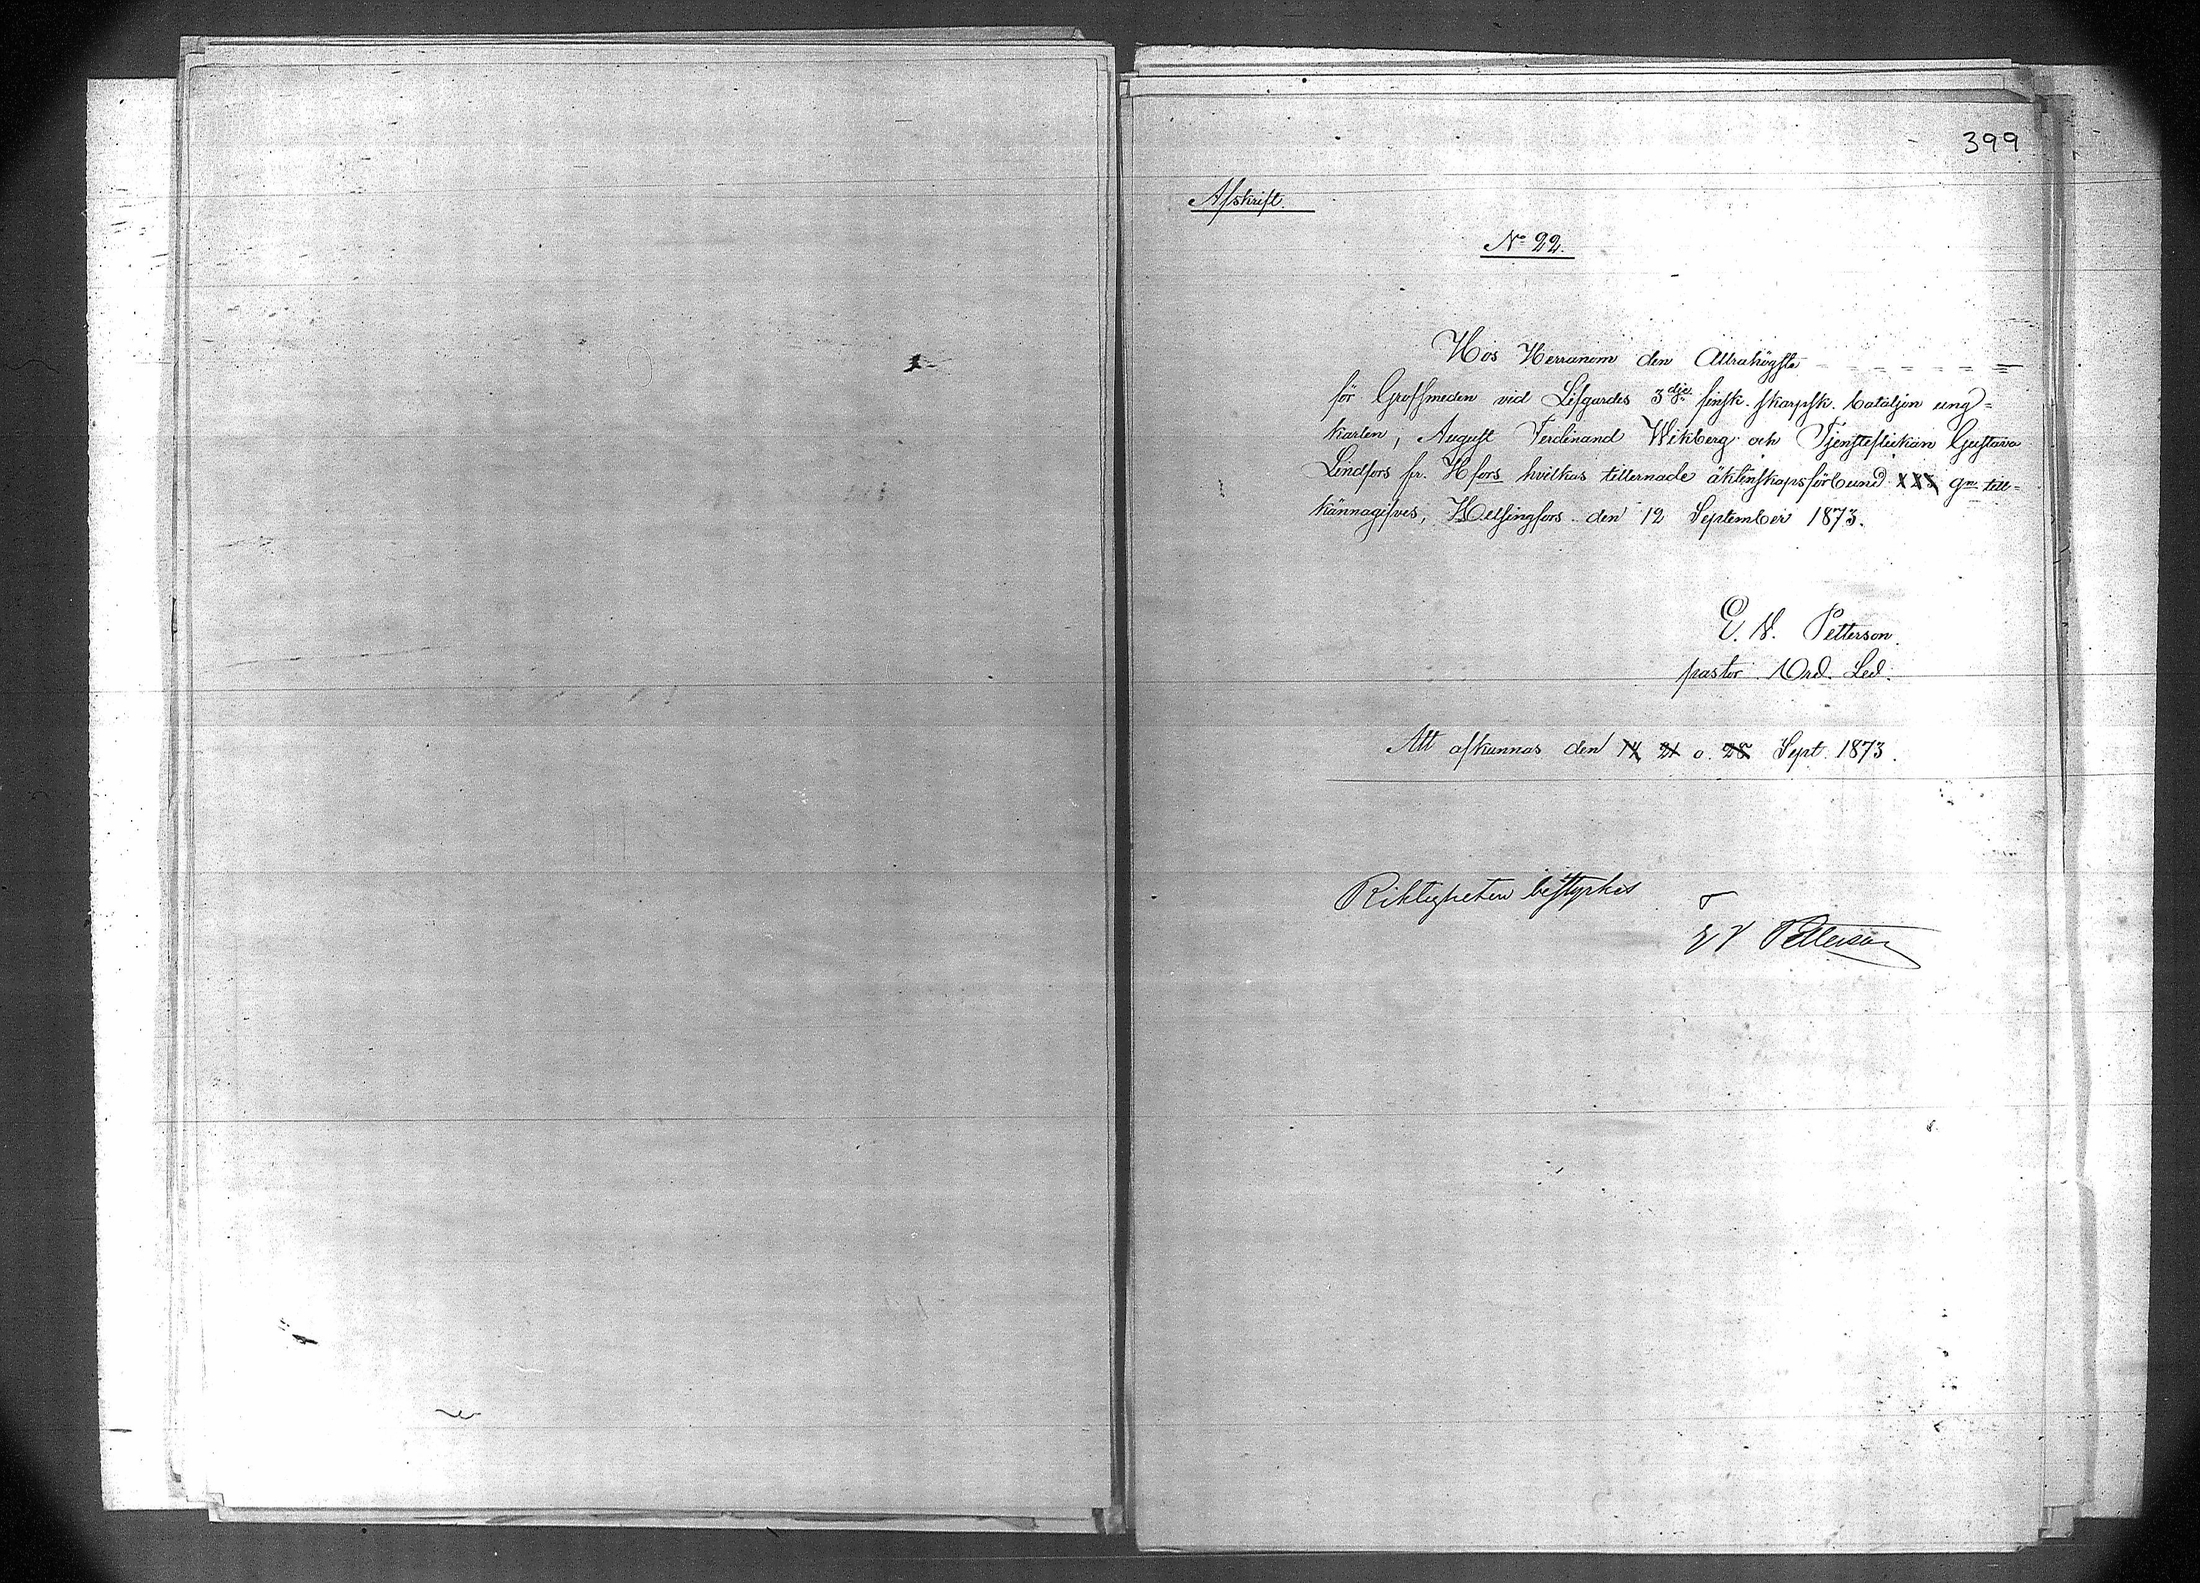 399
Afskrift.
No 22.
Hos Herranom den Allrahögsta
för Grofsmeden vid Lifgardes 3dje finsk. skarpsk. bataljon ung=
karlen, August Ferdinand Wikberg och Tjensteflickan Gustava
Lindfors fr. Hfors hvilkas tillernade äktenskapsförbund XXX gr till=
kännagifves, Helsingfors den 12 September 1873.
E. V. Petterson.
pastor Ord. Led.
Att afkunnas den 14 21 o. 28 Sept. 1873.
Riktigheten bestyrkes
E V Petterson